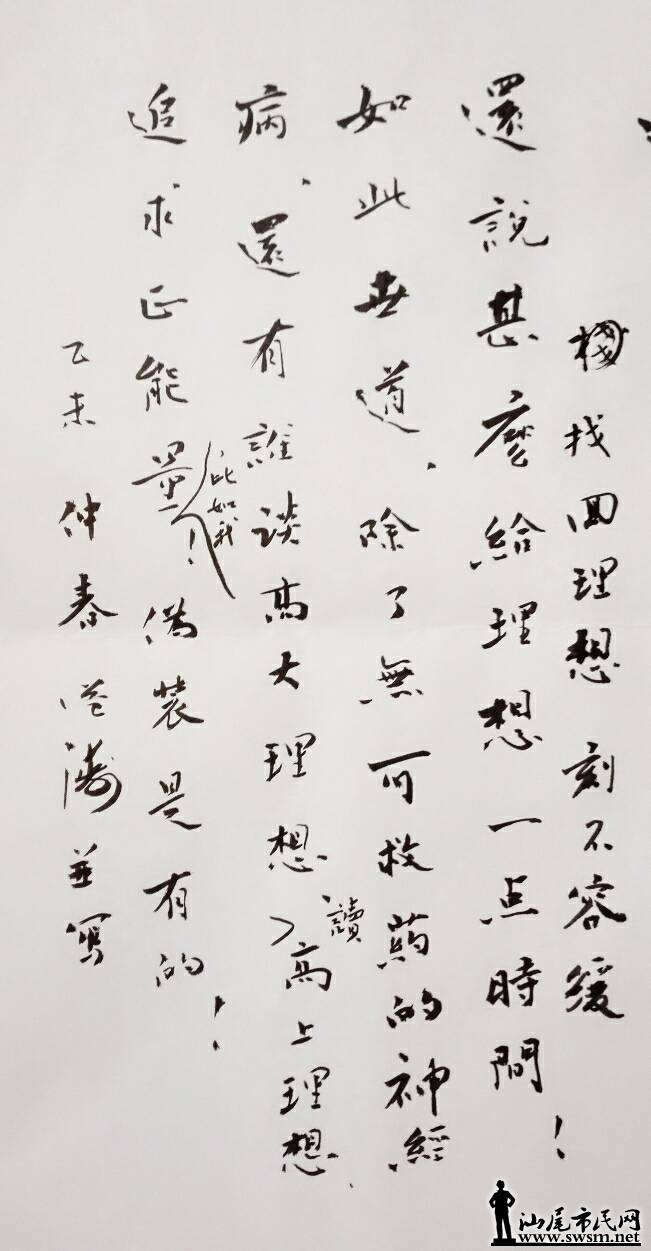 找回理想刻不容緩
還說甚麼給理想一点時間！
如此世道、除了無可救药的神經
病、還有誰談高大理想、讀高上理想、
追求正能量！偽裝是有的！
比如我
乙未仲春 濤並寫
汕尾市民网
www.swsm.net